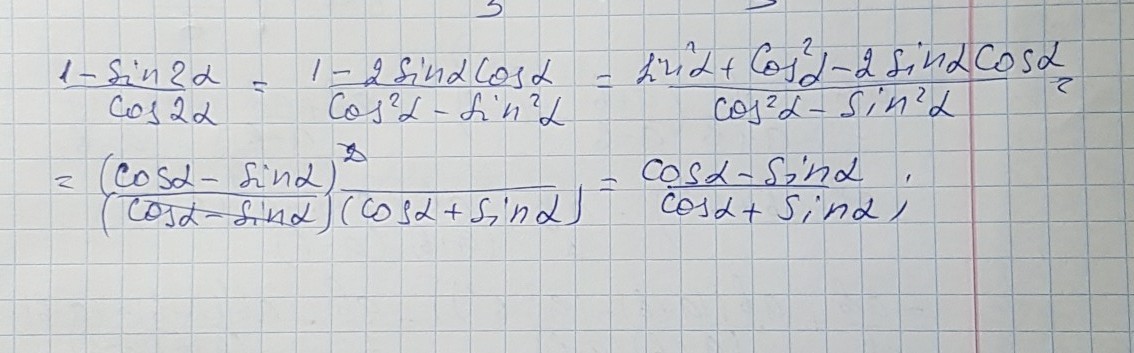 (1 - sin2α)/(cos2α) = (1 - 2sinαcosα)/(cos²α - sin²α) = (sin²α + cos²α - 2sinαcosα)/(cos²α - sin²α) =
= (cosα - sinα)²/((cosα - sinα)(cosα + sinα)) = (cosα - sinα)/(cosα + sinα) ;